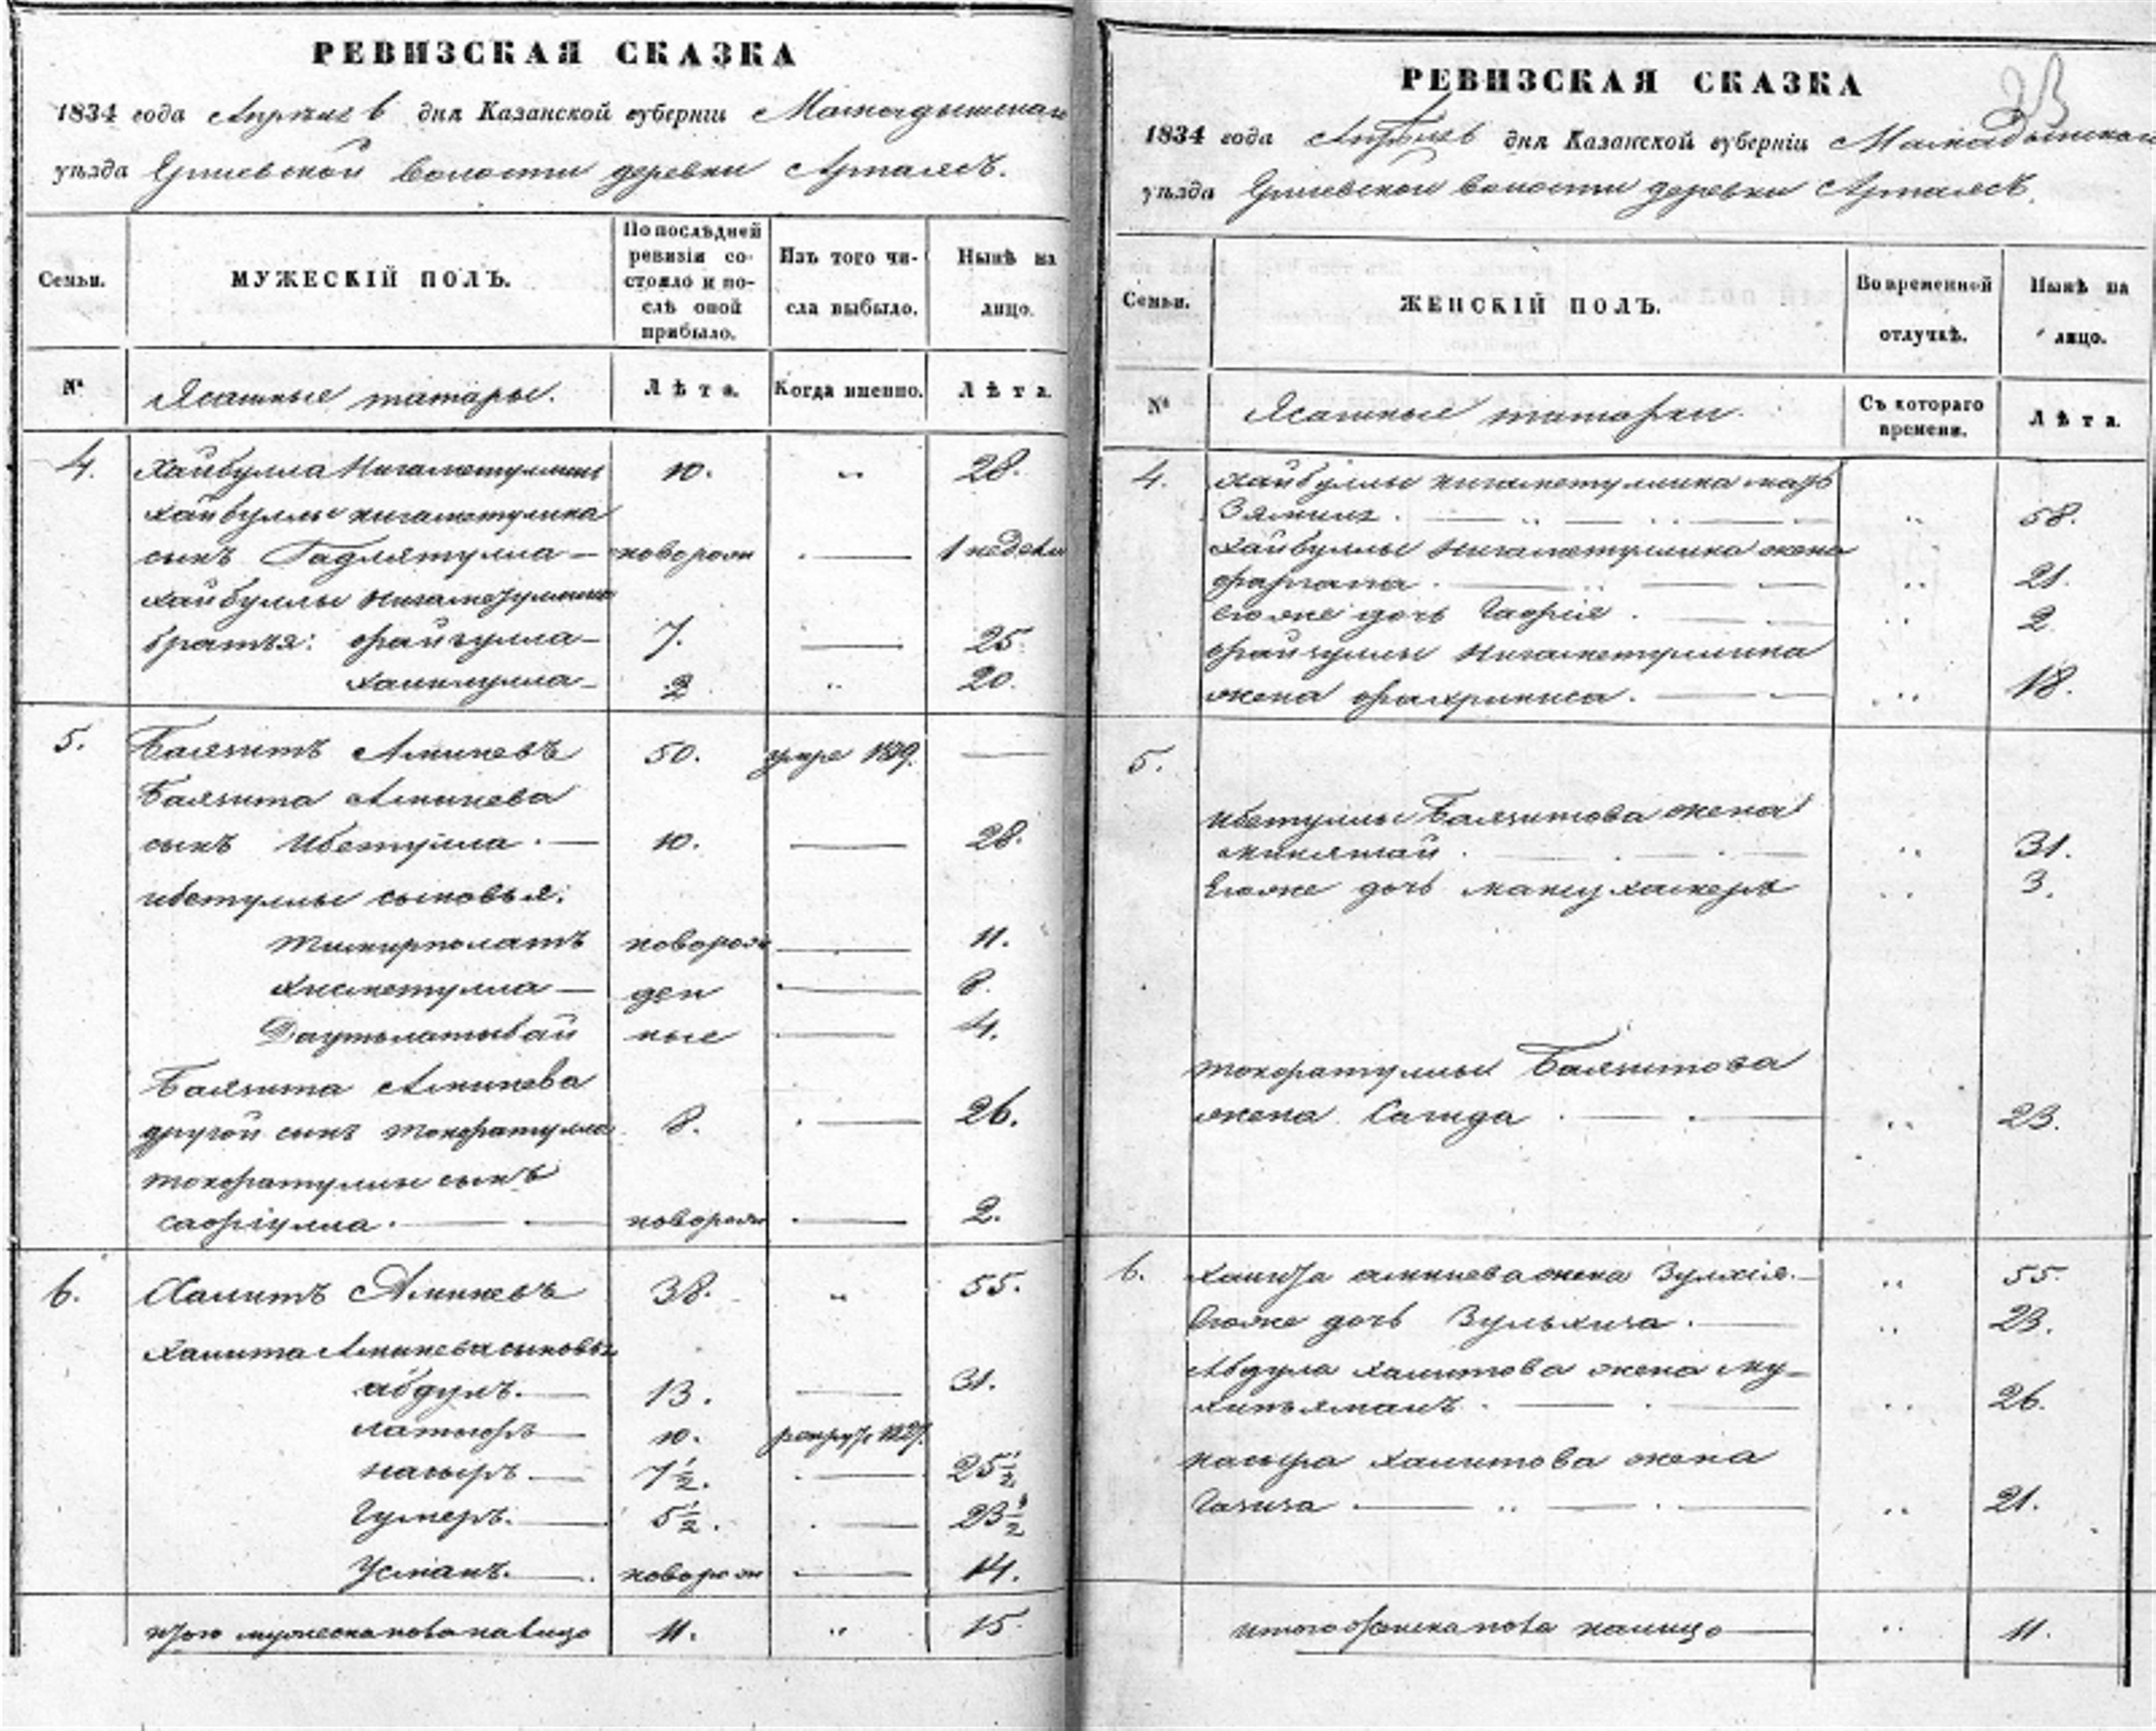 РЕВИЗСКАЯ СКАЗКА
1834 года Апреля 6 дня Казанской губерніи Мамадышскаго
уѣзда Ерыевской волости деревни Арташъ.
Семьи.
МУЖЕСКІЙ ПОЛЪ.
По послѣдней ревизіи состояло и послѣ оной прибыло.
Изъ того числа выбыло.
Нынѣ на лицо.
№
Ясашные татары.
Лѣта.
Когда именно.
Лѣта.
4. Хайбулла Нигаметуллинъ 10. „ 28.
Хайбуллы Нигаметулина
сынъ Гадлятулла — новорож — 1 недели
Хайбуллы Нигаметуллина
братья: Файзулла — 7. — 25.
2 „ 20.
5. Баязитъ Аминевъ 50. умре 1829. —
Баязита Аминева
сынъ Ибетулла. — 10. — 28.
ибетуллы сыновья:
Тимирполатъ новорож — 11.
Хисметулла — ден — 8.
ные — 4.
Баязита Аминева
другой сынъ Токфатулла 8. — 26.
токфатуллы сынъ
сафіулла. — новорож — 2.
6. Хамитъ Аминевъ 38. „ 55.
Хамита Аминева сыновья
абдулъ. — 13. — 31.
латыфъ — 10. рекрут 1827.
насыръ. — 7½. — 25½
Гумеръ. — 5½. — 23½
Усманъ. — новорож — 14.
итого мужеска пола налицо 11. „ 15
РЕВИЗСКАЯ СКАЗКА
1834 года Апреля 6 дня Казанской губерніи Мамадышскаго
уѣзда Ерыевской волости деревни Арташъ.
Семьи.
ЖЕНСКІЙ ПОЛЪ.
Во временной отлучкѣ.
Нынѣ на лицо.
№
Ясашные татарки.
Съ котораго времени.
Лѣта.
4. Хайбуллы нигаметуллина мать
58.
Хайбуллы Нигаметуллина жена
21.
ево же дочь Гафія. — „ 2
Файзуллы Нигаметуллина
жена Фахриниса. — „ 18.
5.
ибетуллы Баязитова жена
31.
Евоже дочь „ 3.
токфатуллы Баязитова
жена Сагида — „ 23.
6. Хамита аминева жена Зулхія. — „ 55.
Евоже дочь Зульхиза. — „ 23.
Абдула Хамитова жена Му-
„ 26.
насыра Хамитова жена
Газиза — „ 21.
итого женска пола налицо — „ 11.